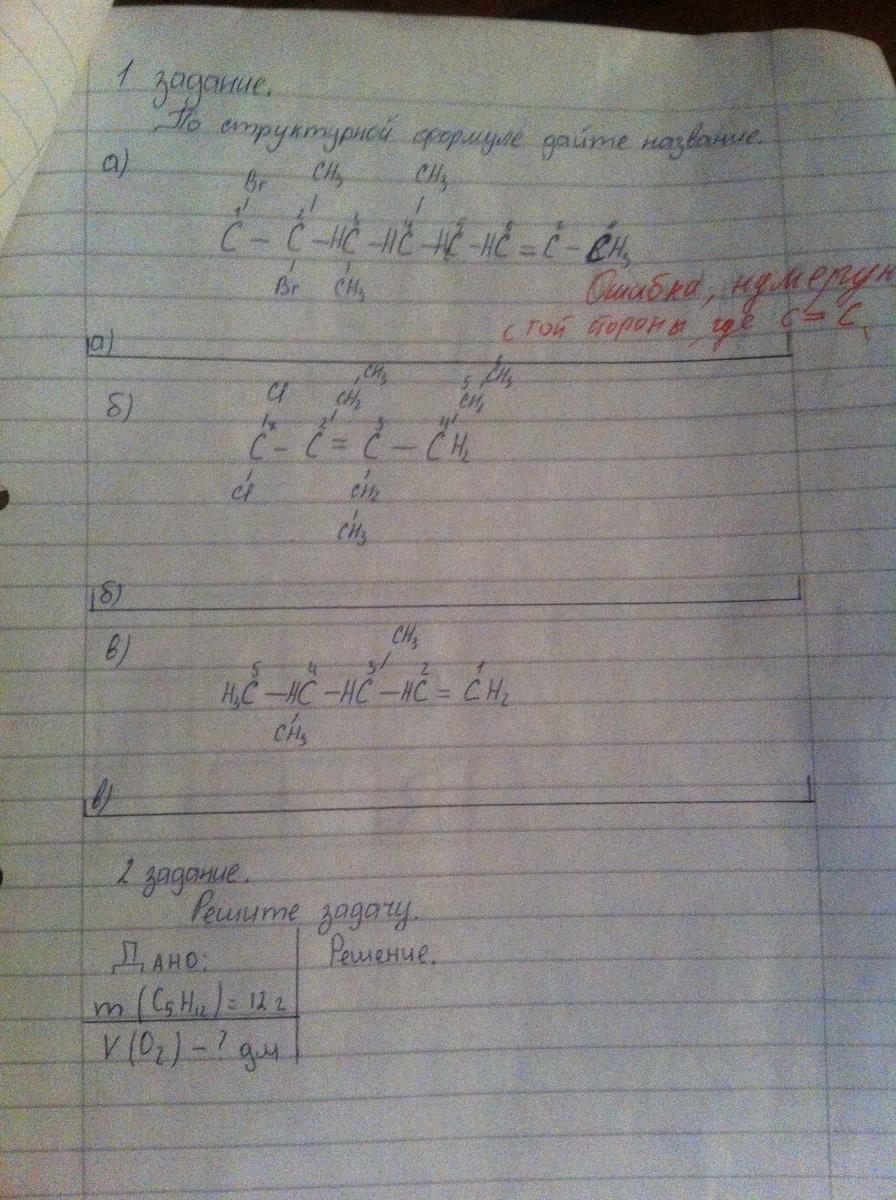 1 задание.
По структурной формуле дайте название.
а)
Br CH₃ CH₃
1 2 3 4 5 6 7 8
C – C – HC – HC – HC – HC = C – CH₃
Br CH₃
Ошибка, нумерун
с той стороны, где C = C,
а)
б)
Cl CH₂ CH₃ 5 CH₂ 6 CH₃
1 2 3 4
C – C = C – CH₂
Cl CH₂
CH₃
б)
в)
CH₃
5 4 3 2 1
H₃C – HC – HC – HC = CH₂
CH₃
в)
2 задание.
Решите задачу.
Дано: Решение.
m (C₅H₁₂) = 12 г
V (O₂) – ? дм